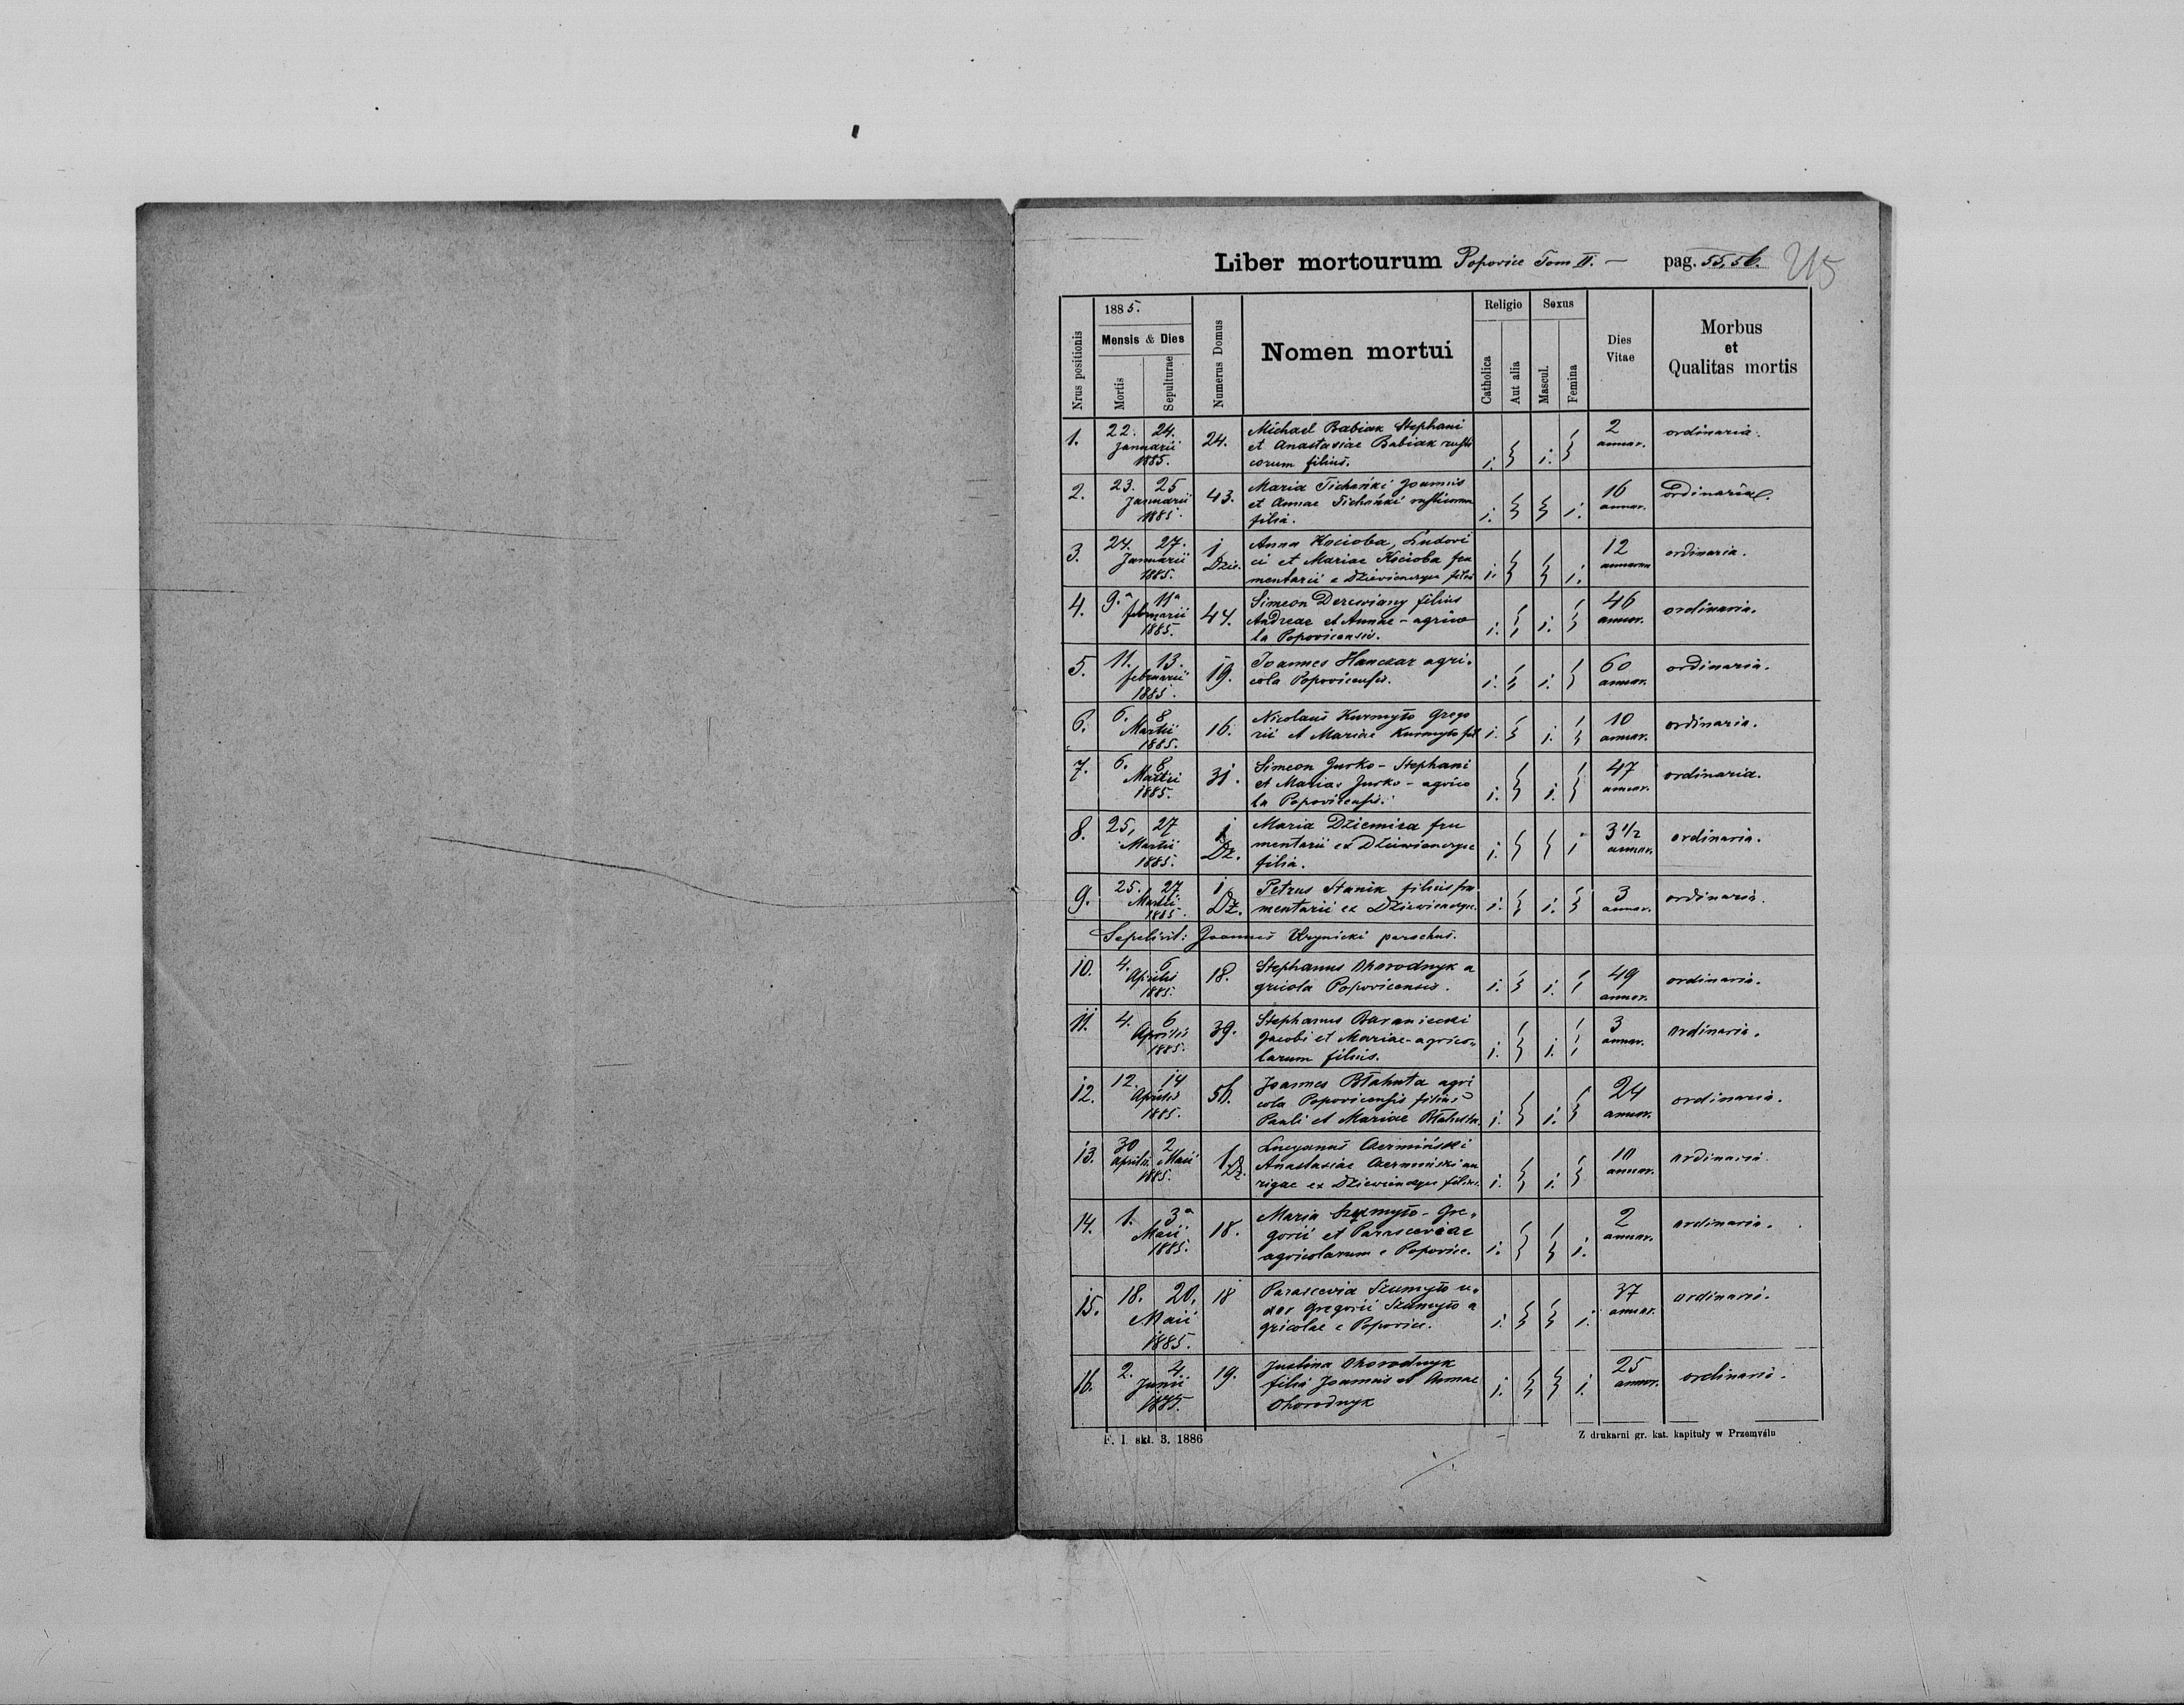 Liber mortourum Popovice Tom II. — pag. 55, 56. 215
Nrus positionis
1885.
Mensis & Dies
Mortis
Sepulturae
Numerus Domus
Nomen mortui
Religio
Catholica
Aut alia
Sexus
Mascul.
Femina
Dies Vitae
Morbus et Qualitas mortis
1. 22. 24. 24. Michael Babiak Stephani 2 ordinaria.
Januarii et Anastasiae Babiak rusti annor.
1885. corum filius. 1. 1.
2. 23. 25 43. Maria Tichański Joannis 16 ordinaria.
Januarii et Annae Tichański rusticorum annor.
1885. filia. 1. 1.
3. 24. 27. 1 Anna Kocioba, Ludovi 12 ordinaria.
Januarii Dzie. ci et Mariae Kocioba fru annorum
1885. mentarii e Dziewienczyce filia 1. 1.
4. 9.a 11a 44. Simeon Derewiany filius 46 ordinaria.
februarii Andreae et Annae - agrico annor.
1885. la Popovicensis. 1. 1.
5. 11. 13. 19. Joannes Hanczar agri- 60 ordinaria.
februarii cola Popovicensis. 1. 1. annor.
1885.
6. 6. 8 16. Nicolaus Kurmyło Grego 10 ordinaria.
Martii rii et Mariae Kurmyło fil 1. 1. annor.
1885.
7. 6. 8. 31. Simeon Jurko - Stephani 47 ordinaria.
Martii et Mariae Jurko - agrico annor.
1885. la Popovicensis. 1. 1.
8. 25, 27 1 Maria Dziemira fru 3 1/2 ordinaria.
Martii Dz. mentarii ex Dziewienczyce annor.
1885. filia. 1. 1
9. 25. 27 1 Petrus Stanik filius fru 3 ordinaria.
Martii Dz. mentarii ex Dziewienczyce. 1. 1. annor.
1885.
Sepelivit: Joannes Krynicki parochus.
10. 4. 6 18. Stephanus Ohorodnyk a 49 ordinaria.
Aprilis gricola Popovicensis. 1. 1. annor.
1885.
11. 4. 6 39. Stephanus Baraniecki 3 ordinaria.
Aprilis Jacobi et Mariae - agrico- annor.
1885. larum filius. 1. 1.
12. 12. 14 56. Joannes Błahuta agri 24 ordinaria.
Aprilis cola Popovicensis filius annor.
1885. Pauli et Mariae Błahuta. 1. 1.
13. 30 2 1 Lucyanus Czermiński 10 ordinaria.
Aprilis Maii Dz. Anastasiae Czermiński au annor.
1885. rigae ex Dziewienczyce filius. 1. 1.
14. 1. 3a 18. Maria Szumyło - Gre- 2 ordinaria.
Maii gorii et Parasceviae annor.
1885. agricolarum e Popovice. 1. 1.
15. 18. 20. 18 Parascevia Szumyło u- 37 ordinaria.
Maii xor Gregorii Szumyło a annor.
1885. gricolae e Popovice. 1. 1.
16. 2. 4. 19. Justina Ohorodnyk 25 ordinaria.
Junii filia Joannis et Annae 1. 1. annor.
1885. Ohorodnyk
F. l. skł. 3. 1886
Z drukarni gr. kat. kapituły w Przemyślu